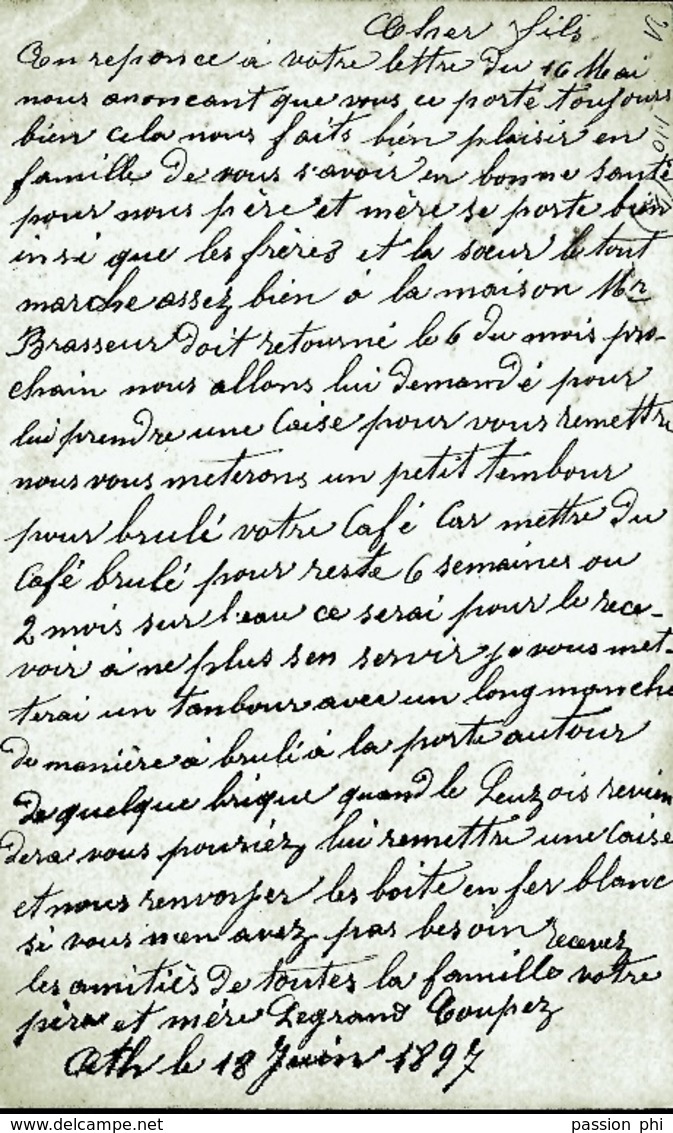 Cher fils
En reponce à votre lettre du 16 Mai
nous anoncant que vous ce porté toujours
bien cela nous faits bien plaisir en
famille de vous savoir en bonne santé
pour nous père et mère se porte bien
insi que les frères et la sœur le tout
marche assez bien à la maison Mr
Brasseur doit retourné le 6 du mois pro-
chain nous allons lui demandé pour
lui prendre une caise pour vous remettre
nous vous meterons un petit tembour
pour brulé votre café car mettre du
café brulé pour reste 6 semaines ou
2 mois sur l'eau ce serai pour le rece-
voir à ne plus sen servir je vous met-
terai un tanbour avec un long manche
de manière à brulé à la porte autour
de quelque brique quand le Leuzois revien
dera vous pouriéz lui remettre une caise
et nous renvoyer les boite en fer blanc
si vous nen avez pas besoin recevez
les amitiès de toutes la famille votre
père et mére Legrand Coupez
Ath le 18 Juin 1897
delcampe.net
passion phi